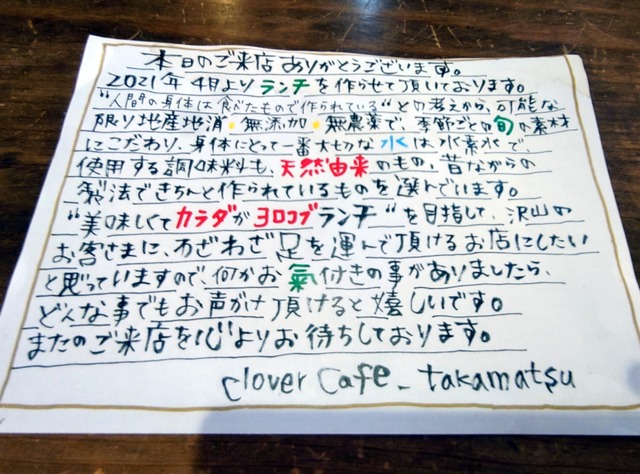 本日のご来店ありがとうございます。
2021年4月よりランチを作らせて頂いております。
“人間の身体は食べたもので作られている“との考えから、可能な
限り地産地消・無添加・無農薬で、季節ごとの旬の素材
にこだわり、身体にとって一番大切な水は水素水で、
使用する調味料も、天然由来のもの、昔ながらの
製法できちんと作られているものを選んでいます。
“美味しくてカラダがヨロコブランチ“を目指して、沢山の
お客さまに、わざわざ足を運んで頂けるお店にしたい
と思っていますので、何かお氣付きの事がありましたら、
どんな事でもお声がけ頂けると嬉しいです。
またのご来店を心よりお待ちしております。
clover cafe - takamatsu